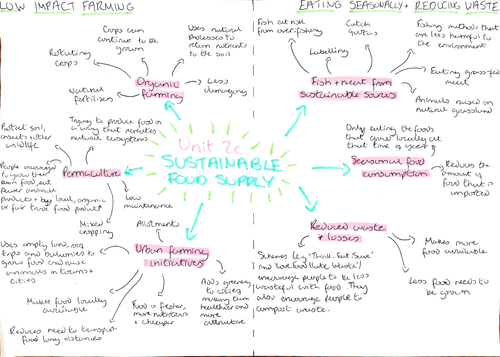 LOW IMPACT FARMING
EATING SEASONALLY + REDUCING WASTE
Crops can
continue to be
grown
Uses natural
processes to
return nutrients
to the soil
Rotating
crops
Organic
farming
Less
damaging
Natural
fertilisers
Fish at risk
from overfishing
Catch
quotas
Fishing methods that
are less harmful to
the environment
Labelling
Eating grass fed
meat
Fish + meat from
sustainable sources
Animals raised on
natural grassland
Protect soil,
insects + other
wildlife
Trying to produce food in
a way that recreates
natural ecosystems
People encouraged
to grow their
own food, eat
fewer animal
products + buy local, organic
or fair trade food products
Permaculture
Low
maintenance
Mixed
cropping
Unit 2c
SUSTAINABLE
FOOD SUPPLY
Only eating the foods
that grow locally at
that time of year
Seasonal food
consumption
Reduces the
amount of
food that is
imported
Allotments
Uses empty land, roof
tops and balconies to
grow food and raise
animals in towns +
cities
Urban farming
initiatives
Makes food locally
available
Food is fresher,
more nutritious
+ cheaper
Adds greenery
to cities,
making them
healthier and
more
attractive
Reduces need to transport
food long distances
Reduced waste
+ losses
Makes more
food available
Less food needs to
be grown
Schemes (e.g 'Think. Eat. Save'
and 'Love Food Hate Waste')
encourage people to be less
wasteful with food. They
also encourage people to
compost waste.